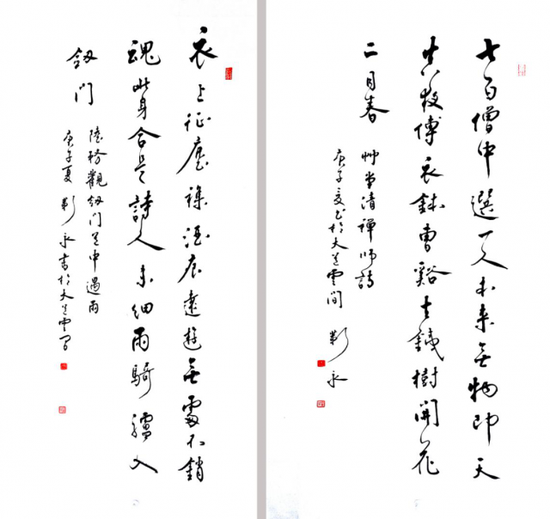 七百僧中選一人本來無物即天
真夜傳衣鉢曹谿去鐵樹開花
二月春
艸堂清禅师詩
庚子夏書於大道雲間 靳永
衣上征塵襍酒痕遠遊無處不銷
魂此身合是詩人未細雨騎驢入
劒門
陸務觀劒门道中遇雨
庚子夏靳永書於大道雲間